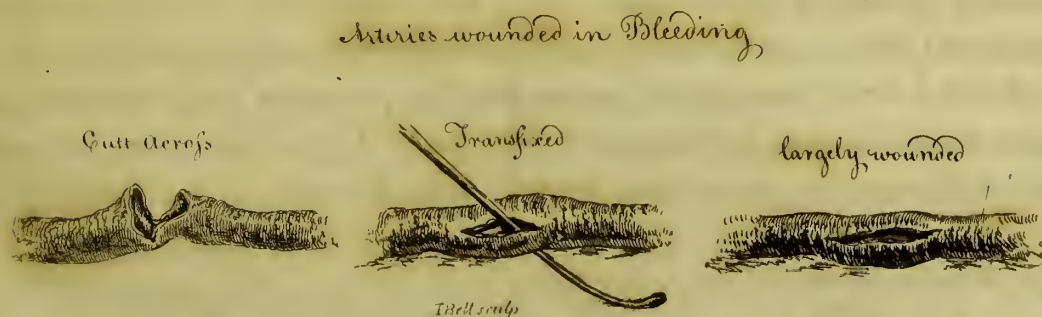 Arteries wounded in Bleeding
Cutt Acroſs
Transfixed
largely wounded
IBell sculp